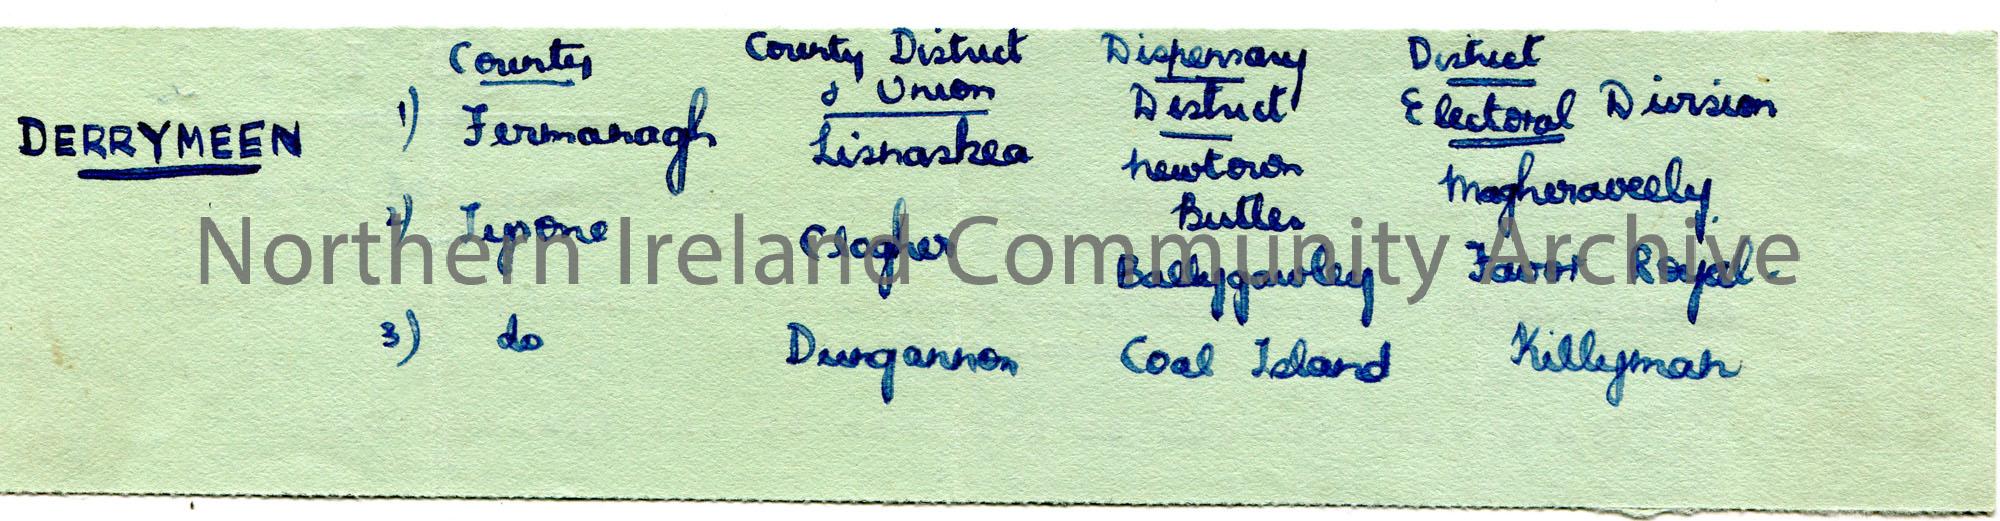 County County District Dispensary District
& Union District Electoral Division
DERRYMEEN 1) Fermanagh Lisnaskea Newtown Butler Magheraveely
2) Tyrone Clogher Ballygawley Favor Royal
3) do Dungannon Coal Island Killyman
Northern Ireland Community Archive